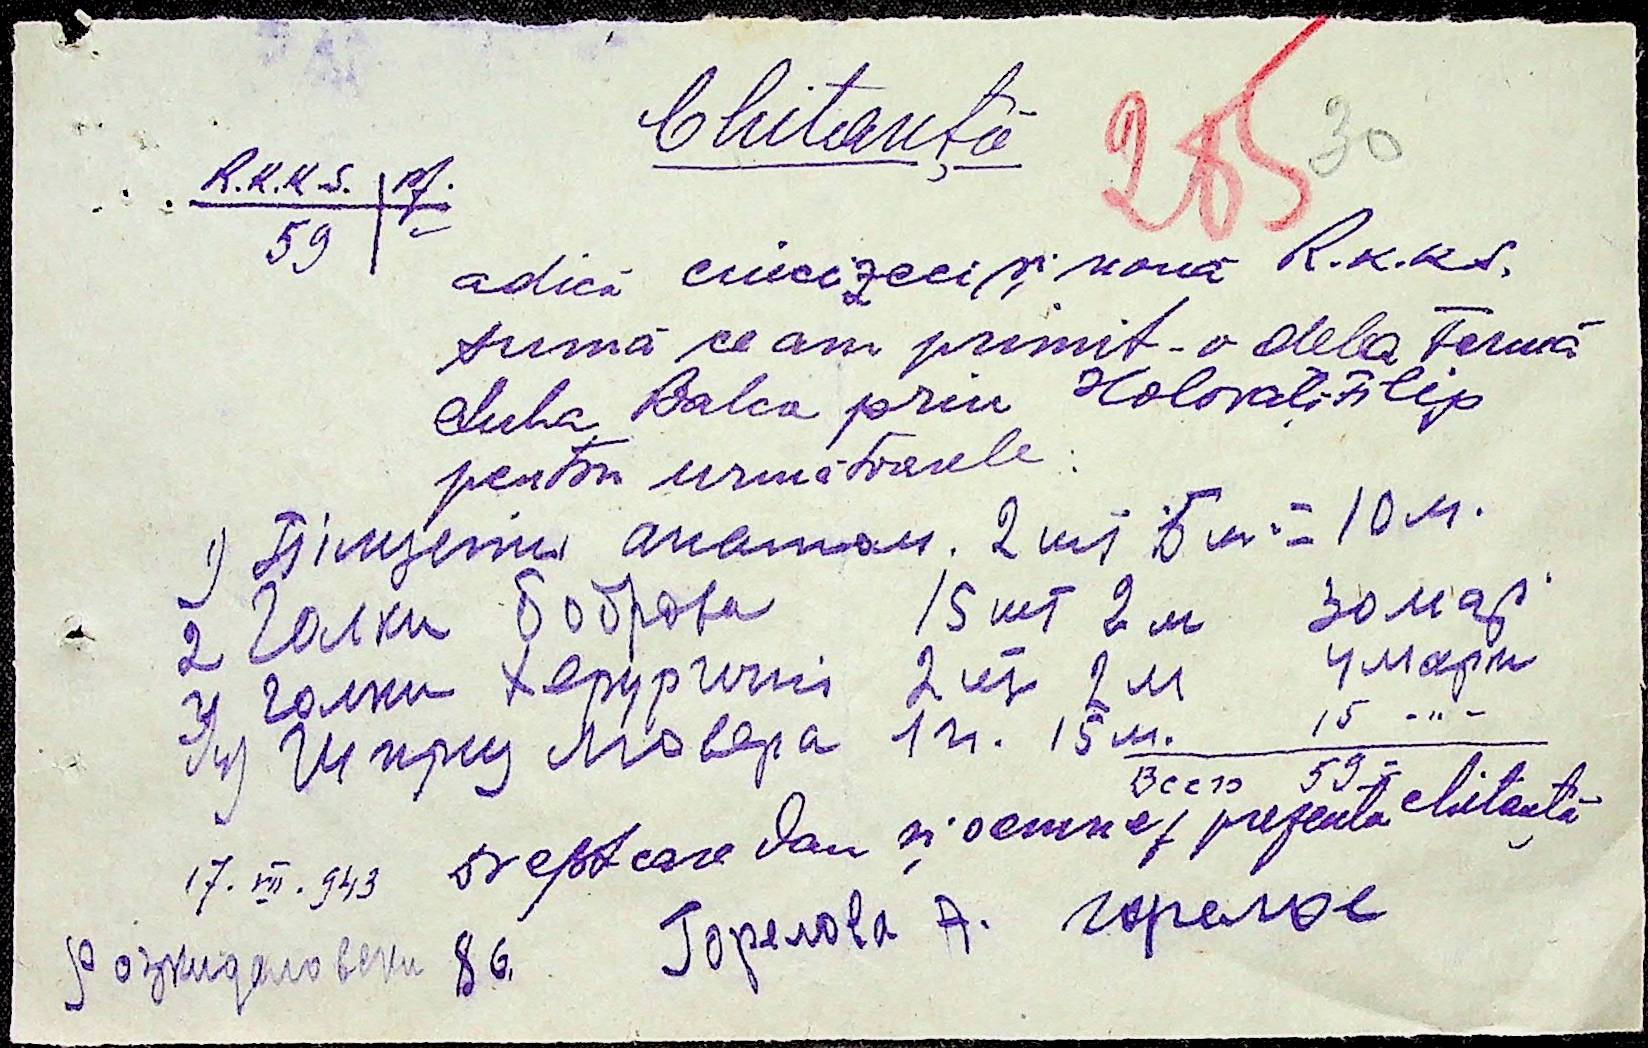 Chitanță
285 30
R.K.K.S. | pf.
59 | -
adică cincizeci și nouă R.K.K.S.
sumă ce am primit-o dela Ferma
Duba Balca prin Holovati Filip
pentru următoarele:
1) Пінцети анатом. 2 шт 5 м. = 10 м.
2 Голки Боброва 15 шт 2 м 30 мар
3) Голки херургичні 2 шт 2 м 4 марки
4) Шприц Люера 1 ч. 15 м. 15 -"-
Всего 59 -
drept care dau și semnez prezenta chitanță
17. VIII. 943
Горелова А.
86.